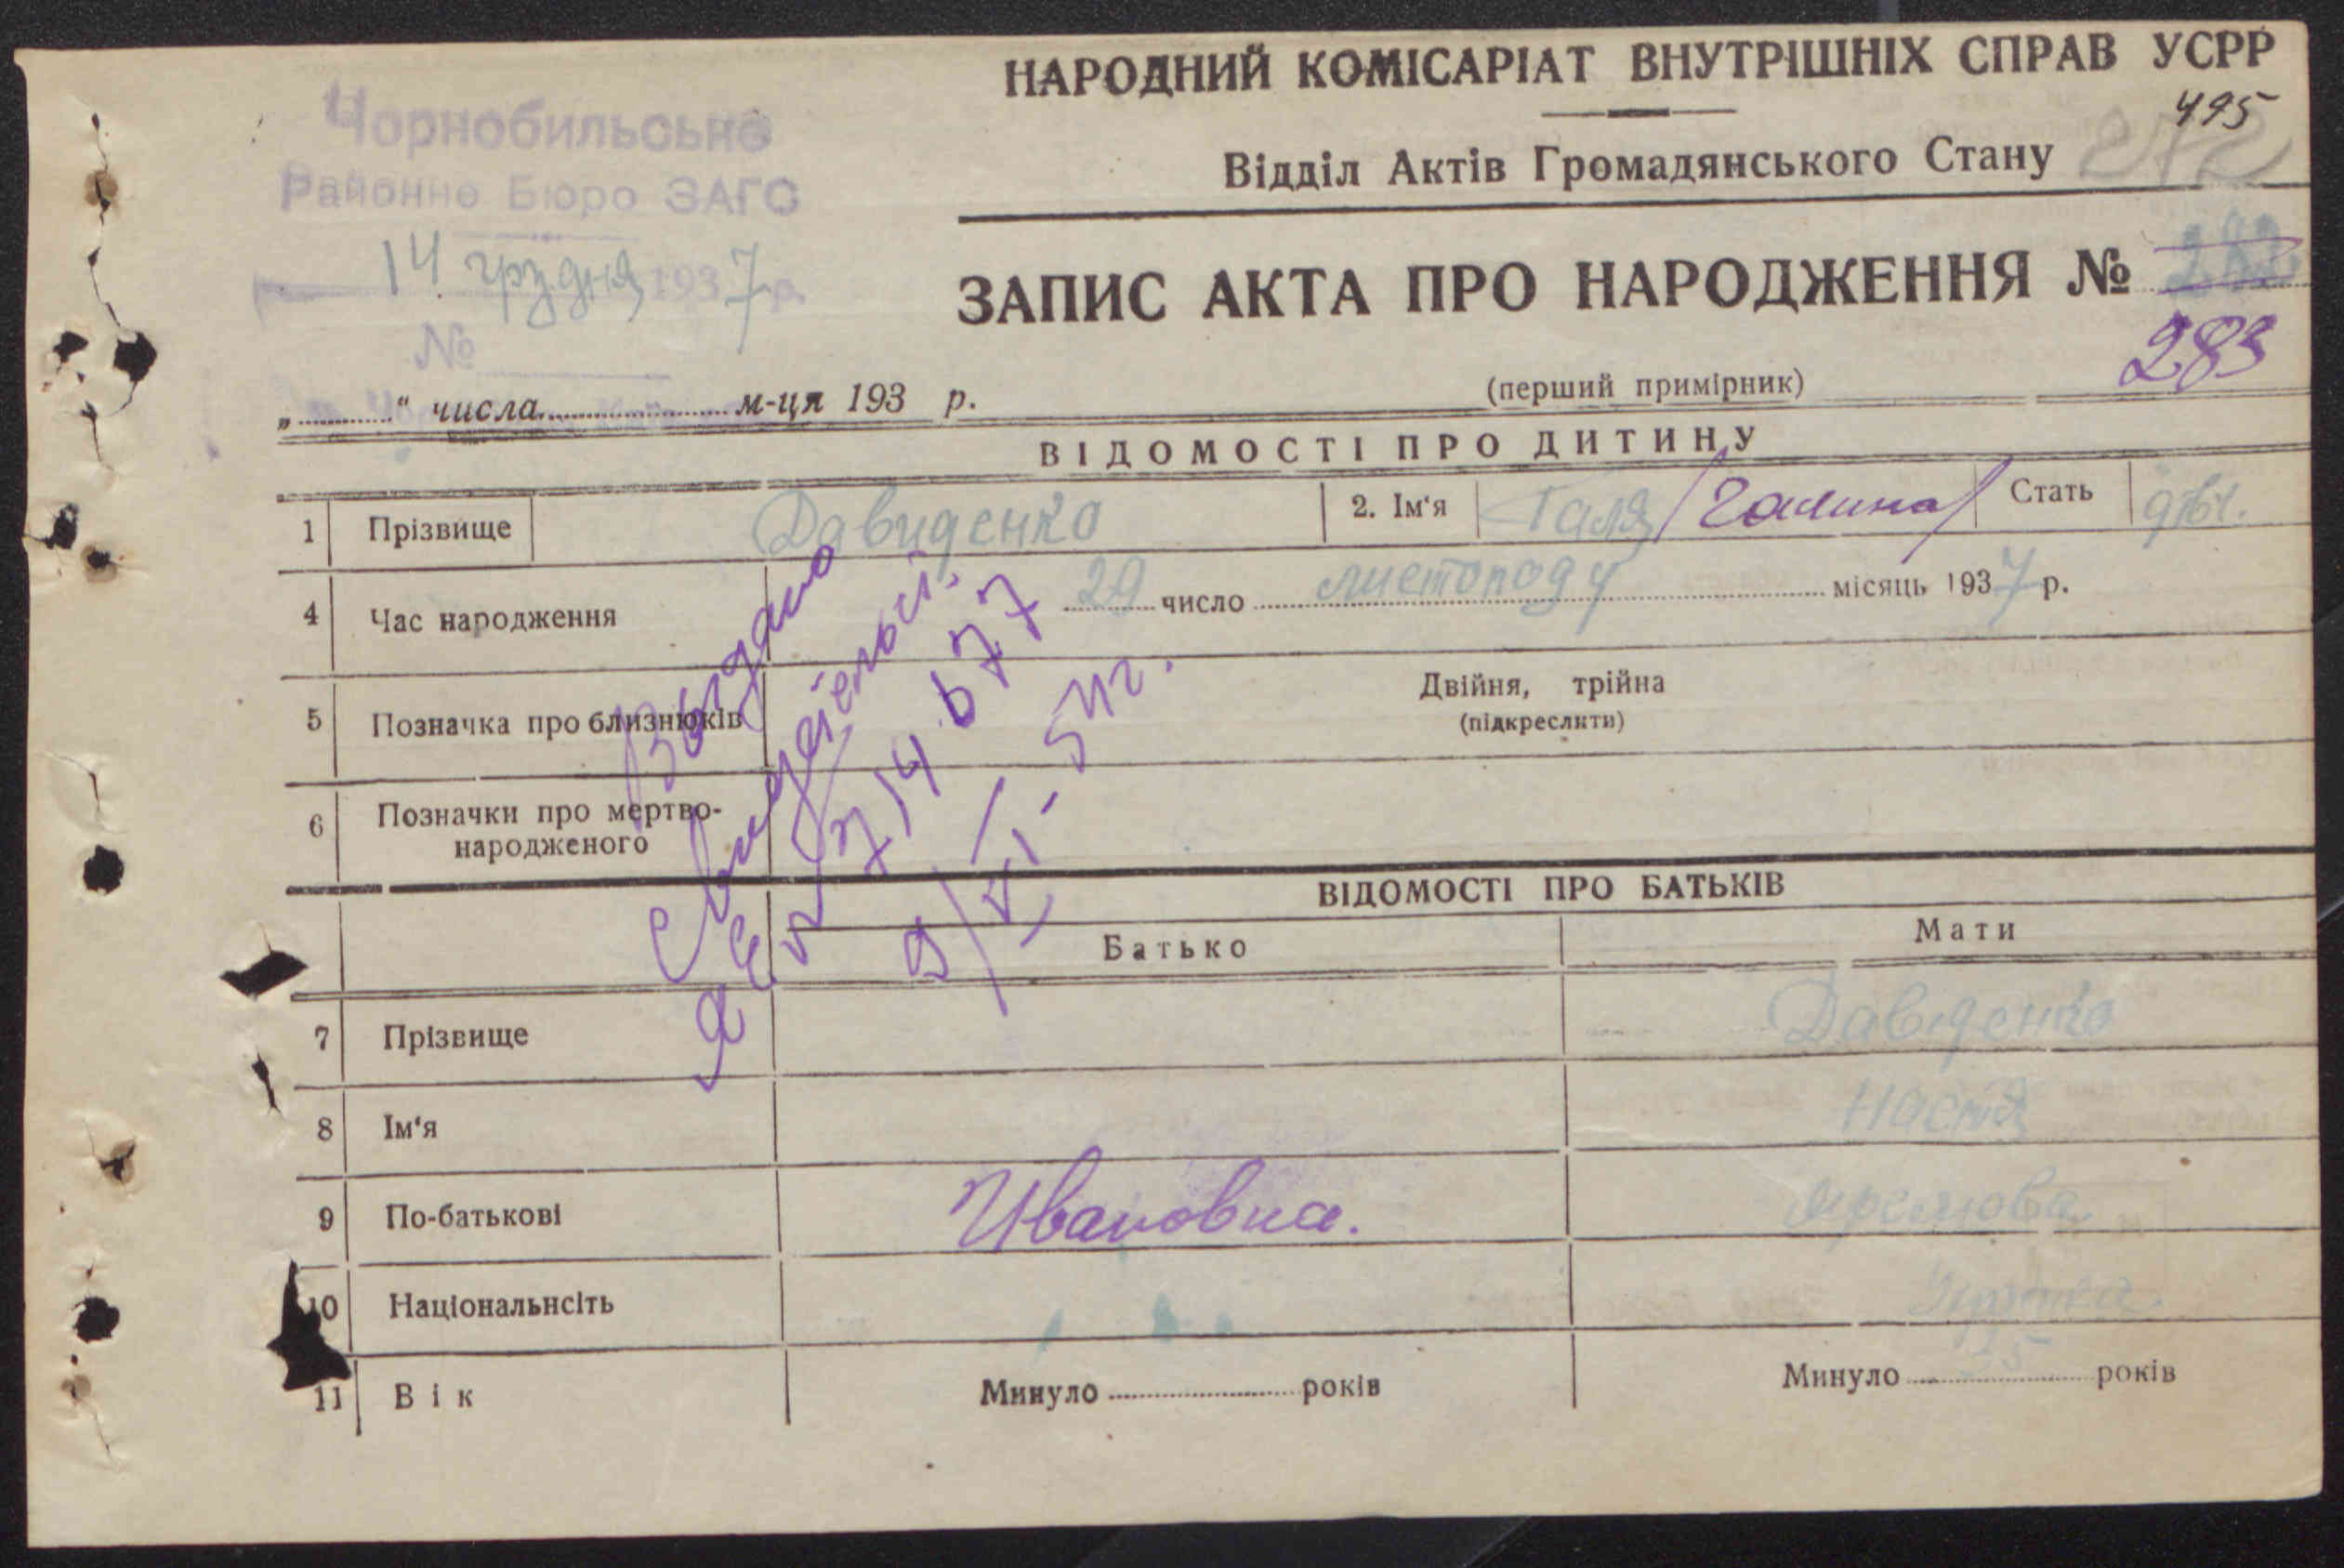 НАРОДНИЙ КОМІСАРІАТ ВНУТРІШНІХ СПРАВ УСРР
495
272
Відділ Актів Громадянського Стану
Чорнобильське
Районне Бюро ЗАГС
14 грудня 1937 р.
№
ЗАПИС АКТА ПРО НАРОДЖЕННЯ № 282
283
(перший примірник)
„ “ числа м-ця 193 р.
ВІДОМОСТІ ПРО ДИТИНУ
1 Прізвище Давиденко 2. Ім‘я Галя /Галина/ Стать дівч.
4 Час народження 29 число листопаду місяць 1937 р.
5 Позначка про близнюків Двійня, трійна
(підкреслити)
6 Позначки про мертво-
народженого
Выдано
Свидетельст.
714677
9/VI-54г.
ВІДОМОСТІ ПРО БАТЬКІВ
Батько Мати
7 Прізвище Давиденко
8 Ім‘я Настя
9 По-батькові Ивановна.
10 Національнсіть
11 Вік Минуло років Минуло 35 років